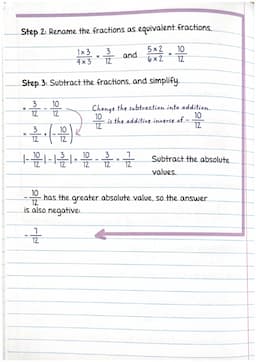 Step 2: Rename the fractions as equivalent fractions.
1×3/4×3 = 3/12 and 5×2/6×2 = 10/12
Step 3: Subtract the fractions, and simplify.
= 3/12 - 10/12 Change the subtraction into addition.
10/12 is the additive inverse of - 10/12
= 3/12 + (- 10/12)
|- 10/12| - | 3/12 | = 10/12 - 3/12 = 7/12 Subtract the absolute
values.
- 10/12 has the greater absolute value, so the answer
is also negative:
- 7/12